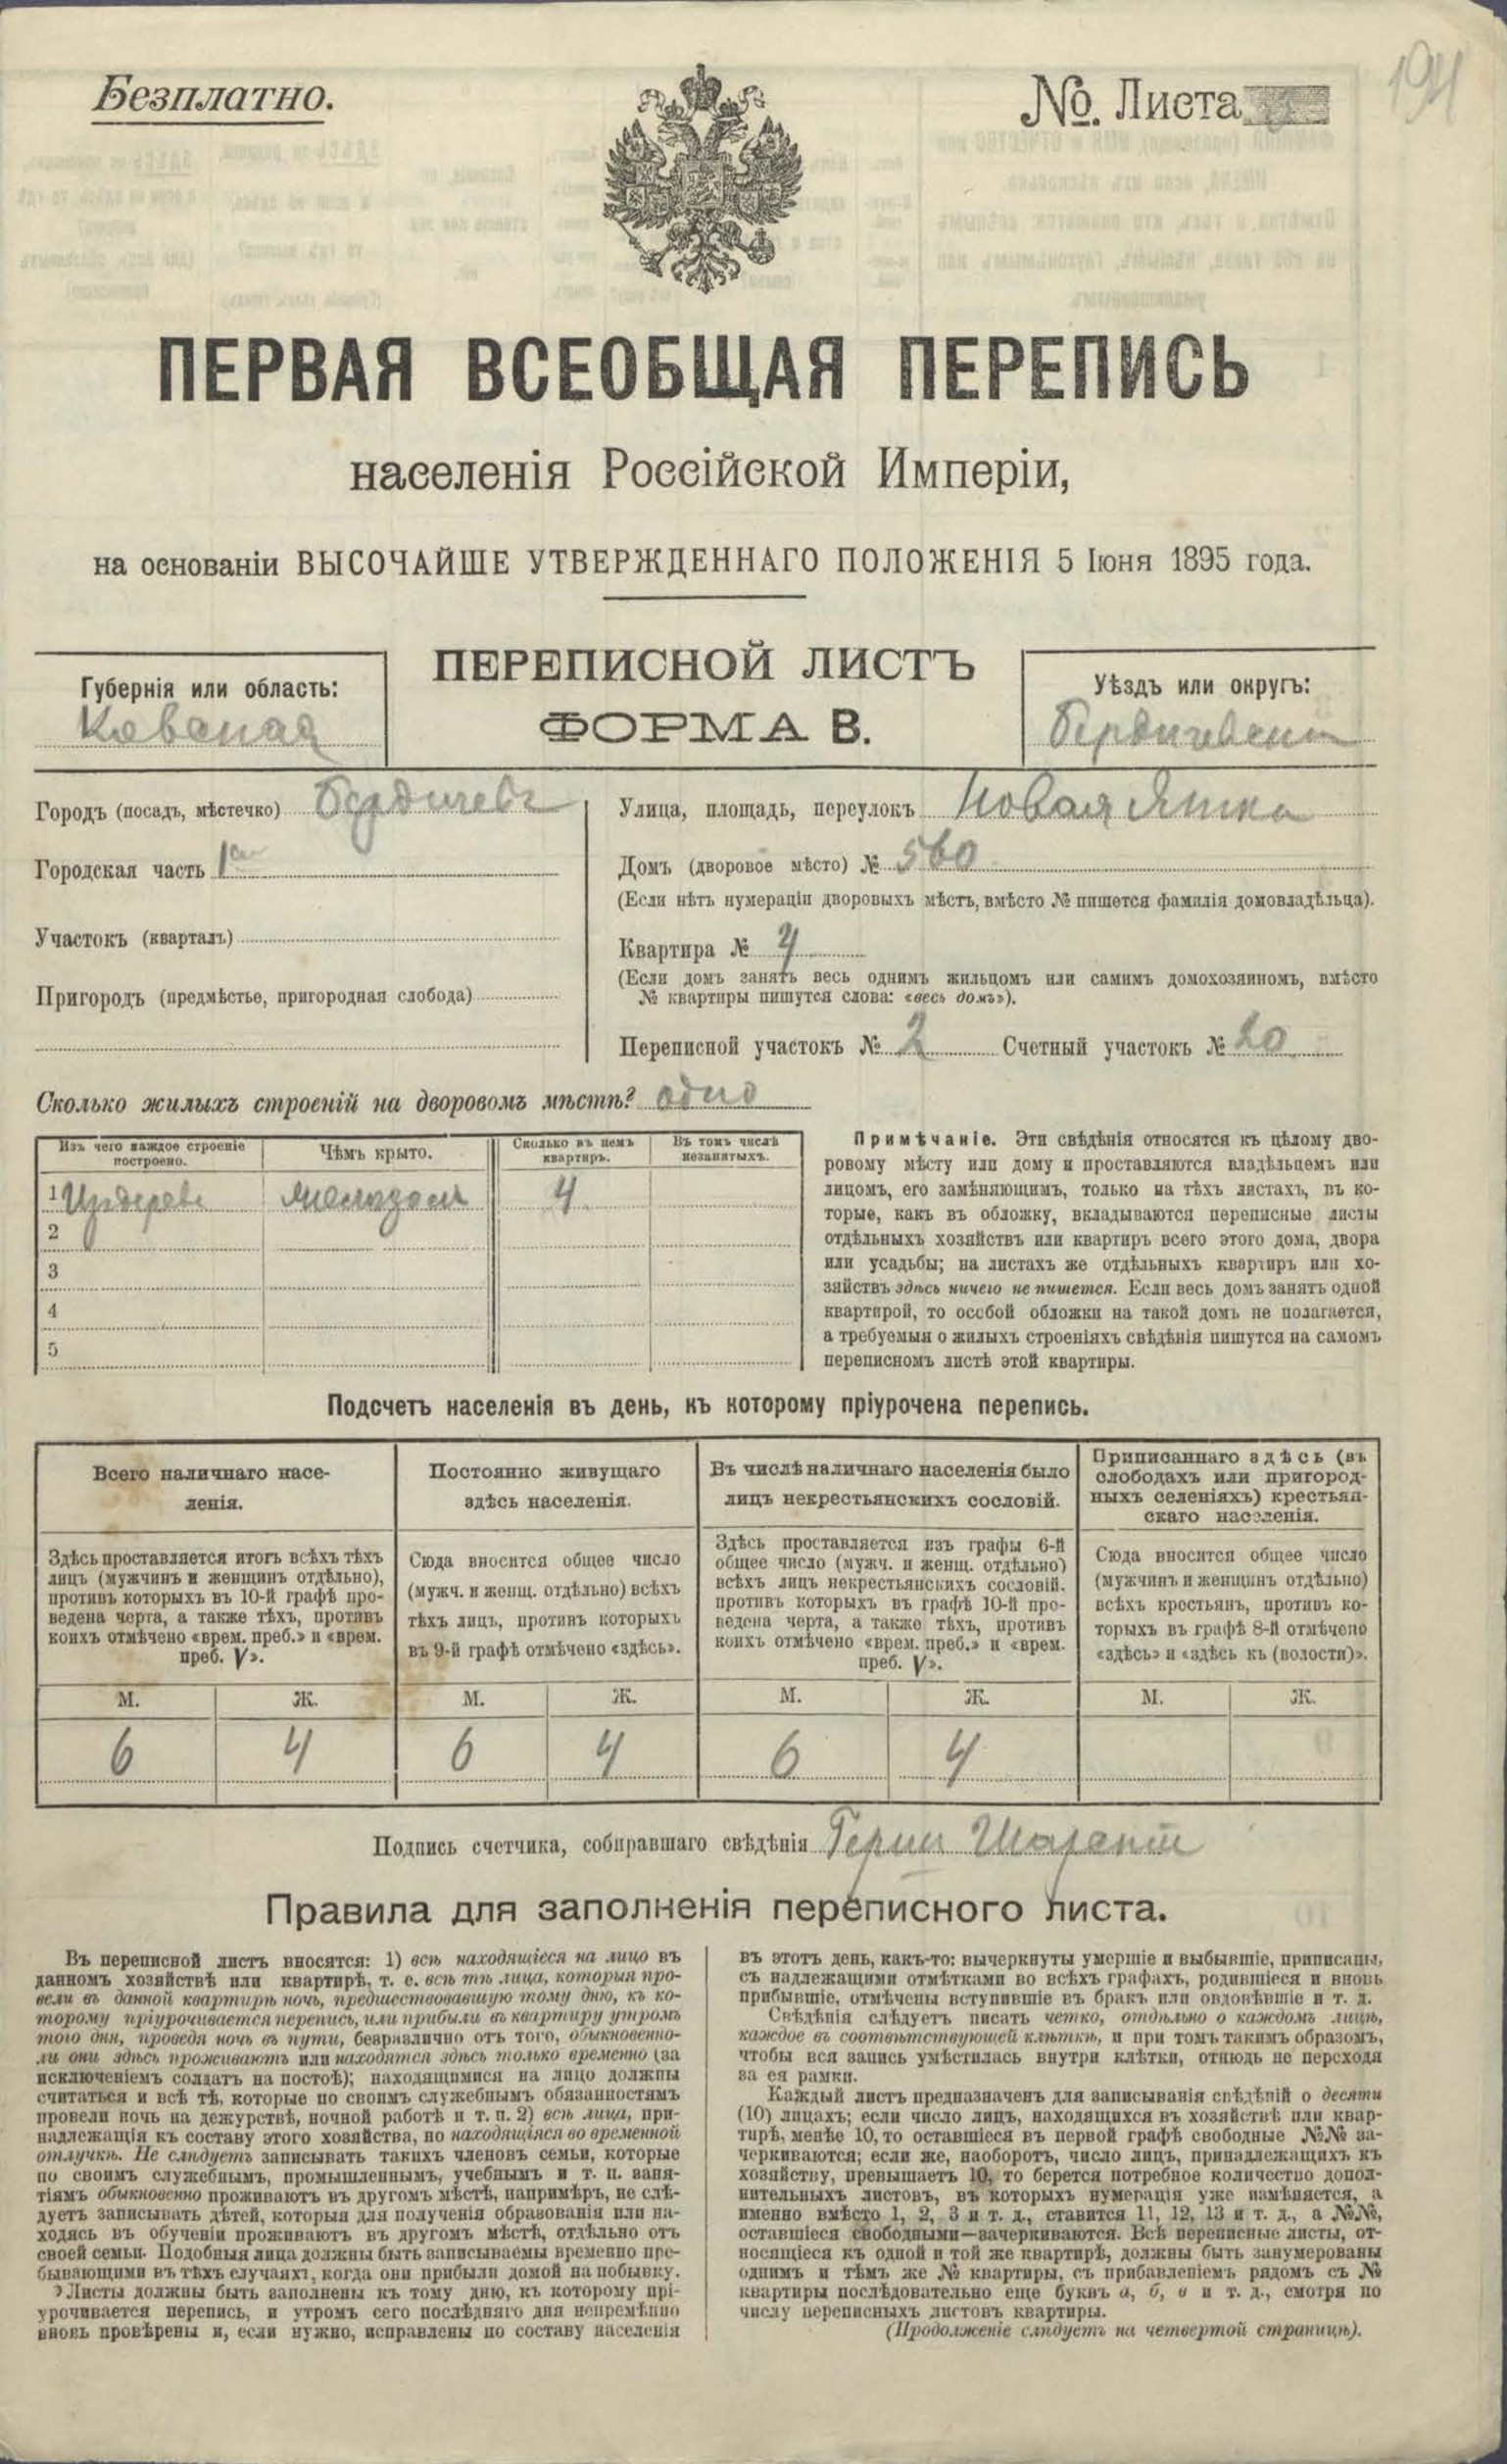 Безплатно.
№. Листа
194
ПЕРВАЯ ВСЕОБЩАЯ ПЕРЕПИСЬ
населенія Россійской Имперіи,
на основаніи ВЫСОЧАЙШЕ УТВЕРЖДЕННАГО ПОЛОЖЕНІЯ 5 Іюня 1895 года.
Губернія или область:
ПЕРЕПИСНОЙ ЛИСТЪ
ФОРМА В.
Уѣздъ или округъ:
Бердичевскій
Городъ (посадъ, мѣстечко) Бердичевъ
Городская часть 1ая
Участокъ (кварталъ)
Пригородъ (предмѣстье, пригородная слобода)
Улица, площадь, переулокъ Новая
Домъ (дворовое мѣсто) № 560
(Если нѣтъ нумераціи дворовыхъ мѣстъ, вмѣсто № пишется фамилія домовладѣльца).
Квартира № 4
(Если домъ занятъ весь однимъ жильцомъ или самимъ домохозяиномъ, вмѣсто
№ квартиры пишутся слова: «весь домъ»).
Переписной участокъ № 2 Счетный участокъ № 20
Сколько жилыхъ строеній на дворовомъ мѣстѣ? одно
Изъ чего каждое строеніе построено.
Чѣмъ крыто.
Сколько въ немъ квартиръ.
Въ томъ числѣ незанятыхъ.
1 Издерева желѣзомъ 4
2
3
4
5
Примѣчаніе. Эти свѣдѣнія относятся къ цѣлому дво-
ровому мѣсту или дому и проставляются владѣльцемъ или
лицомъ, его замѣняющимъ, только на тѣхъ листахъ, въ ко-
торые, какъ въ обложку, вкладываются переписные листы
отдѣльныхъ хозяйствъ или квартиръ всего этого дома, двора
или усадьбы; на листахъ же отдѣльныхъ квартиръ или хо-
зяйствъ здѣсь ничего не пишется. Если весь домъ занятъ одной
квартирой, то особой обложки на такой домъ не полагается,
а требуемыя о жилыхъ строеніяхъ свѣдѣнія пишутся на самомъ
переписномъ листѣ этой квартиры.
Подсчетъ населенія въ день, къ которому пріурочена перепись.
Всего наличнаго насе-
ленія.
Постоянно живущаго
здѣсь населенія.
Въ числѣ наличнаго населенія было
лицъ некрестьянскихъ сословій.
Приписаннаго здѣсь (въ
слободахъ или пригород-
ныхъ селеніяхъ) крестьян-
скаго населенія.
Здѣсь проставляется итогъ всѣхъ тѣхъ
лицъ (мужчинъ и женщинъ отдѣльно),
противъ которыхъ въ 10-й графѣ про-
ведена черта, а также тѣхъ, противъ
коихъ отмѣчено «врем. преб.» и «врем.
преб. V».
Сюда вносится общее число
(мужч. и женщ. отдѣльно) всѣхъ
тѣхъ лицъ, противъ которыхъ
въ 9-й графѣ отмѣчено «здѣсь».
Здѣсь проставляется изъ графы 6-й
общее число (мужч. и женщ. отдѣльно)
всѣхъ лицъ некрестьянскихъ сословій,
противъ которыхъ въ графѣ 10-й про-
ведена черта, а также тѣхъ, противъ
коихъ отмѣчено «врем. преб.» и «врем.
преб. V».
Сюда вносится общее число
(мужчинъ и женщинъ отдѣльно)
всѣхъ крестьянъ, противъ ко-
торыхъ въ графѣ 8-й отмѣчено
«здѣсь» и «здѣсь къ (волости)».
М. Ж. М. Ж. М. Ж. М. Ж.
6 4 6 4 6 4
Подпись счетчика, собиравшаго свѣдѣнія
Правила для заполненія переписного листа.
Въ переписной листъ вносятся: 1) всѣ находящіеся на лицо въ
данномъ хозяйствѣ или квартирѣ, т. е. всѣ тѣ лица, которыя про-
вели въ данной квартирѣ ночь, предшествовавшую тому дню, къ ко-
торому пріурочивается перепись, или прибыли въ квартиру утромъ
того дня, проведя ночь въ пути, безразлично отъ того, обыкновенно-
ли они здѣсь проживаютъ или находятся здѣсь только временно (за
исключеніемъ солдатъ на постоѣ); находящимися на лицо должны
считаться и всѣ тѣ, которые по своимъ служебнымъ обязанностямъ
провели ночь на дежурствѣ, ночной работѣ и т. п. 2) всѣ лица, при-
надлежащія къ составу этого хозяйства, но находящіяся во временной
отлучкѣ. Не слѣдуетъ записывать такихъ членовъ семьи, которые
по своимъ служебнымъ, промышленнымъ, учебнымъ и т. п. заня-
тіямъ обыкновенно проживаютъ въ другомъ мѣстѣ, напримѣръ, не слѣ-
дуетъ записывать дѣтей, которыя для полученія образованія или на-
ходясь въ обученіи проживаютъ въ другомъ мѣстѣ, отдѣльно отъ
своей семьи. Подобныя лица должны быть записываемы временно пре-
бывающими въ тѣхъ случаяхъ, когда они прибыли домой на побывку.
Листы должны быть заполнены къ тому дню, къ которому прі-
урочивается перепись, и утромъ сего послѣдняго дня непремѣнно
вновь провѣрены и, если нужно, исправлены по составу населенія
въ этотъ день, какъ-то: вычеркнуты умершіе и выбывшіе, приписаны,
съ надлежащими отмѣтками во всѣхъ графахъ, родившіеся и вновь
прибывшіе, отмѣчены вступившіе въ бракъ или овдовѣвшіе и т. д.
Свѣдѣнія слѣдуетъ писать четко, отдѣльно о каждомъ лицѣ,
каждое въ соотвѣтствующей клѣткѣ, и при томъ такимъ образомъ,
чтобы вся запись умѣстилась внутри клѣтки, отнюдь не переходя
за ея рамки.
Каждый листъ предназначенъ для записыванія свѣдѣній о десяти
(10) лицахъ; если число лицъ, находящихся въ хозяйствѣ или квар-
тирѣ, менѣе 10, то оставшіеся въ первой графѣ свободные №№ за-
черкиваются; если же, наоборотъ, число лицъ, принадлежащихъ къ
хозяйству, превышаетъ 10, то берется потребное количество допол-
нительныхъ листовъ, въ которыхъ нумерація уже измѣняется, а
именно вмѣсто 1, 2, 3 и т. д., ставится 11, 12, 13 и т. д., а №№,
оставшіеся свободными—зачеркиваются. Всѣ переписные листы, от-
носящіеся къ одной и той же квартирѣ, должны быть занумерованы
однимъ и тѣмъ же № квартиры, съ прибавленіемъ рядомъ съ №
квартиры послѣдовательно еще буквъ а, б, в и т. д., смотря по
числу переписныхъ листовъ квартиры.
(Продолженіе слѣдуетъ на четвертой страницѣ).